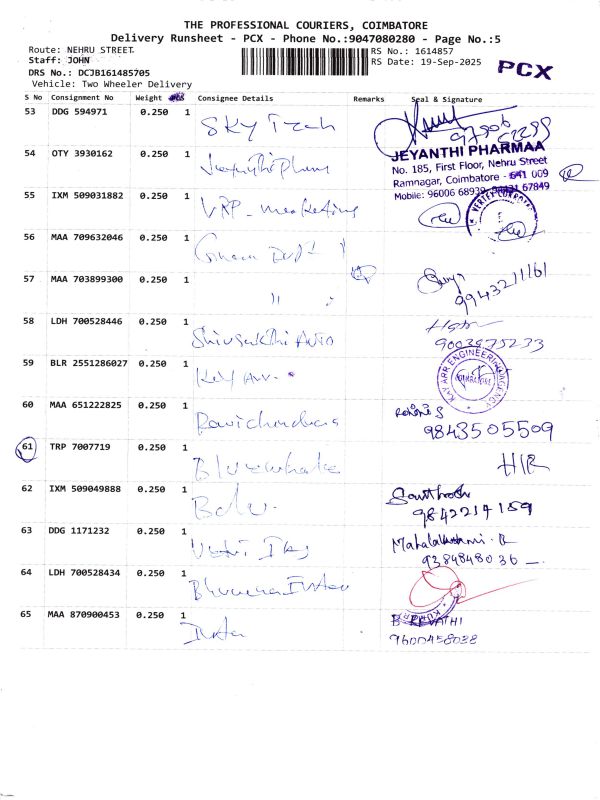 THE PROFESSIONAL COURIERS, COIMBATORE
Delivery Runsheet - PCX - Phone No.:9047080280 - Page No.:5
Route: NEHRU STREET RS No.: 1614857
Staff: JOHN RS Date: 19-Sep-2025
PCX
DRS No.: DCJB161485705
Vehicle: Two Wheeler Delivery
S No Consignment No Weight Consignee Details Remarks Seal & Signature
53 DDG 594971 0.250 1 Sky Tech
54 OTY 3930162 0.250 1
JEYANTHI PHARMAA
No. 185, First Floor, Nehru Street
Ramnagar, Coimbatore - 641 009
Mobile: 96006 68939, 67849
55 IXM 509031882 0.250 1 VRP - marketing
56 MAA 709632046 0.250 1
57 MAA 703899300 0.250 1 〃 9943211161
58 LDH 700528446 0.250 1 Shivsakthi Auto 9003975233
59 BLR 2551286027 0.250 1
KAY ARR ENGINEERING AGENCY
COIMBATORE
60 MAA 651222825 0.250 1 Ravichandran 9843505509
61 TRP 7007719 0.250 1 Bluewhale H/R
62 IXM 509049888 0.250 1 Babu 9842214159
63 DDG 1171232 0.250 1 Mahalakshmi. R
9384848036
64 LDH 700528434 0.250 1
65 MAA 870900453 0.250 1 REVATHI
9600458038